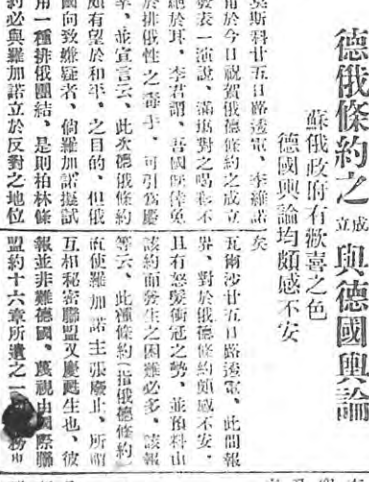 德俄條約之成立與德國輿論
蘇俄政府有歡喜之色
德國輿論均頗感不安
莫斯科廿五日路透電、李維諾
甫於今日祝賀俄德條約之成立
發表一演說、滿場對之喝彩不
絕於耳、李君謂、吾國旣倖免
於排俄性之毒手、可引爲慶
幸、並宣言云、此次德俄條約
頗有望於和平、之目的、但俄
國向致嫌疑者、倘羅加諾擬試
用一種排俄團結、是則柏林條
約必與羅加諾立於反對之地位
矣
瓦爾沙廿五日路透電、此間報
界、對於俄德條約頗感不安、
且有怒髮衝冠之勢、並預料由
該約而發生之困難必多、該報
等云、此種條約(指俄德條約)
直使羅加諾主張廢止、所謂
互相秘密聯盟又慶甦生也、彼
報並非難德國、蔑視由國際聯
盟約十六章所遺之一務